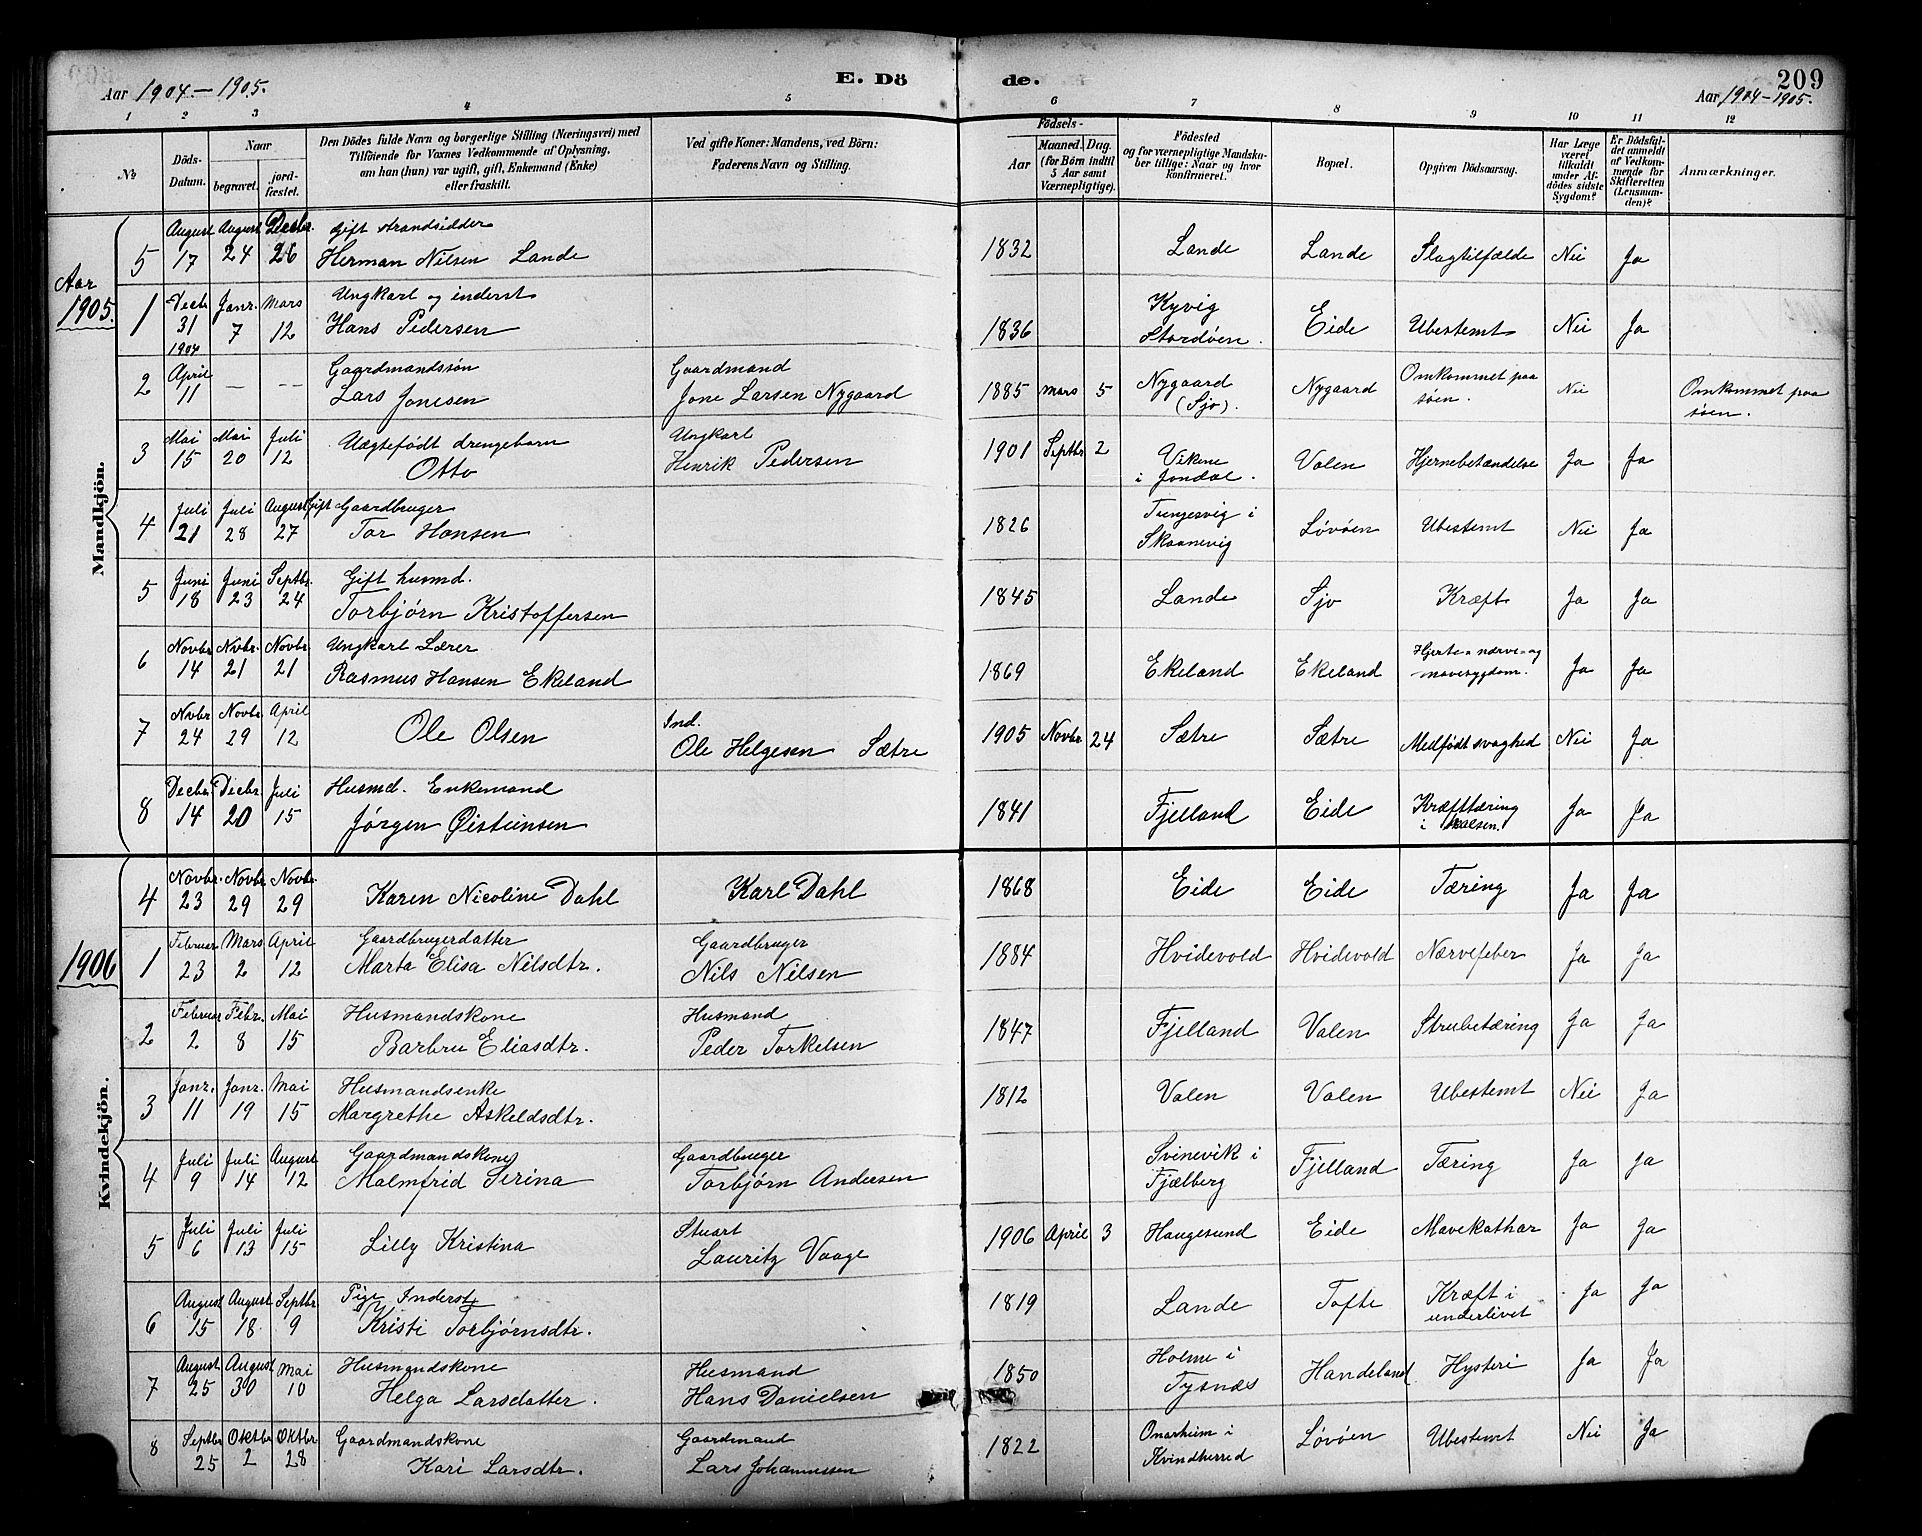 Aar 1904 – 1905.
E. Dö de.
209
Aar 1904–1905.
1 2 3 4 5 6 7 8 9 10 11 12
No
Döds-Datum.
Naar
begravet.
jord-fæstet.
Den Dödes fulde Navn og borgerlige Stilling (Næringsvei) med
Tilföiende for Voxnes Vedkommende af Oplysning,
om han (hun) var ugift, gift, Enkemand (Enke)
eller fraskilt.
Ved gifte Koner: Mandens, ved Börn:
Faderens Navn og Stilling.
Födsels-
Aar
Maaned. Dag.
(for Börn indtil
5 Aar samt
Værnepligtige).
Födested
og for værnepligtige Mandska-
ber tillige: Naar og hvor
konfirmeret.
Bopæl.
Opgiven Dödsaarsag.
Har Læge
været
tilkaldt
under Af-
dödes sidste
Sygdom?
Er Dödsfal-
det anmeldt
af Vedkom-
mende for
Skifteretten
(Lensman-
den)?
Anmærkninger.
Mandkjön.
5 August 17 August 24 Decbr. 26 Gift strandsidder
Herman Nilsen Lande 1832 Lande Lande Slagtilfælde Nei Ja
Aar 1905.
1 Decbr 31 1904 Janr. 7 Mars 12 Ungkarl og inderst
Hans Pedersen 1836 Kyvig Stordøen. Eide Ubestemt Nei Ja
2 April 11 — -- Gaardmandssøn
Lars Jonesen Gaardmand
Jone Larsen Nygaard 1885 Mars 5 Nygaard (Sjo). Nygaard Omkommet paa søen. Nei Omkommet paa søen.
3 Mai 15 Mai 20 Juli 12 Uægtefødt drengebarn
Otto Ungkarl
Henrik Pedersen 1901 Septbr 2 Vikene i Jondal. Valen Hjernebetændelse Ja Ja
4 Juli 21 Juli 28 August 27 Gift Gaardbruger
Tor Hansen 1826 Tungesvig i Skaanevig Løvøen Ubestemt Nei Ja
5 Juni 18 Juni 23 Septbr. 24 Gift husmd.
Torbjørn Kristoffersen 1845 Lande Sjo Kræft Ja Ja
6 Novbr 14 Nvbr. 21 Novbr. 21 Ungkarl Lærer
Rasmus Hansen Ekeland 1869 Ekeland Ekeland Hjerte- nærve- og mavesygdom. Ja Ja
7 Nvbr 24 Novbr. 29 April 12 Ole Olsen Ind.
Ole Helgesen Sætre 1905 Novbr 24 Sætre Sætre Medfødt svaghed Nei Ja
8 Decbr. 14 Decbr. 20 Juli 15 Husmd. Enkemand
Jørgen Øisteinsen 1841 Fjelland Eide Kræfttæring i halsen. Ja Ja
Kvindekjön.
4 Novbr. 23 Novbr. 29 Novbr. 29 Karen Nicoline Dahl Karl Dahl 1868 Eide Eide Tæring Ja Ja
1906
1 Februar 23 Mars 2 April 12 Gaardbrugerdatter
Marta Elisa Nilsdtr. Gaardbruger
Nils Nilsen 1884 Hvidevold Hvidevold Nærvefeber Ja Ja
2 Februar 2 Febr. 8 Mai 15 Husmandskone
Barbru Eliasdtr. Husmand
Peder Torkelsen 1847 Fjelland Valen Strubetæring Ja Ja
3 Janr. 11 Janr. 19 Mai 15 Husmandsenke
Margrethe Askeldsdtr. 1812 Valen Valen Ubestemt Nei Ja
4 Juli 9 Juli 14 August 12 Gaardmandskone
Malmfrid Serina Gaardbruger
Torbjørn Andersen Svinevik i Fjælberg Fjelland Tæring Ja Ja
5 Juli 6 Juli 13 Juli 15 Lilly Kristina Stuart
Lauritz Vaage 1906 April 3 Haugesund Eide Mavekathar Ja Ja
6 August 15 August 18 Septbr 9 Pige Inderst
Kristi Torbjørnsdtr. 1819 Lande Tofte Kræft i underlivet Ja Ja
7 August 25 August 30 Mai 10 Husmandskone
Helga Larsdatter. Husmand
Hans Danielsen 1850 Holme i Tysnæs Handeland Hysteri Ja Ja
8 Septbr 25 Oktbr 2 Oktbr 28 Gaardmandskone
Kari Larsdtr. Gaardmand
Lars Johannessen 1822 Onarheim i Kvindherred Løvøen Ubestemt Nei Ja